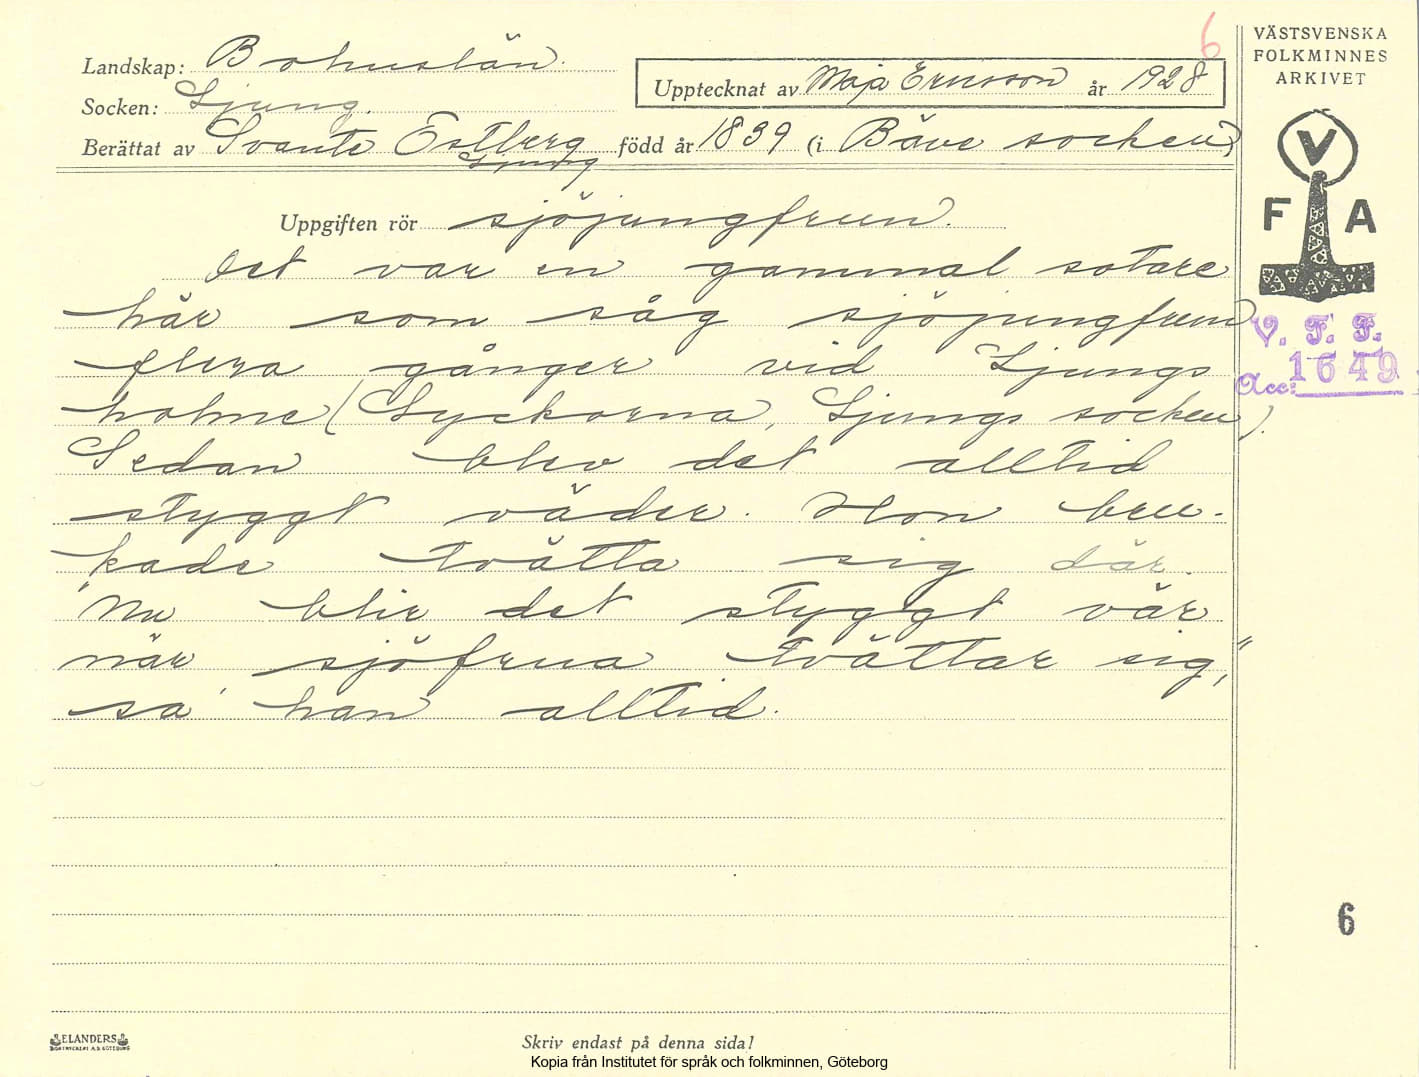 6
VÄSTSVENSKA
FOLKMINNES
ARKIVET
Landskap: Bohuslän.
Upptecknat av Maja Ericsson år 1928
Socken: Ljung.
Berättat av Svante Estberg född år 1839 (i Bäve socken)
Ljung
V
F A
Uppgiften rör sjöjungfrun.
Det var en gammal sotare
här som såg sjöjungfrun
flera gånger vid Ljungs
holme (Lyckorna, Ljungs socken).
Sedan blev det alltid
styggt väder. Hon bru-
kade tvätta sig där.
"Nu blir det styggt vär
när sjöfrua tvättar sig,"
sa' han alltid.
V. F. F.
Acc: 1649
6
ELANDERS
BOKTRYCKERI A.B. GÖTEBORG
Skriv endast på denna sida!
Kopia från Institutet för språk och folkminnen, Göteborg